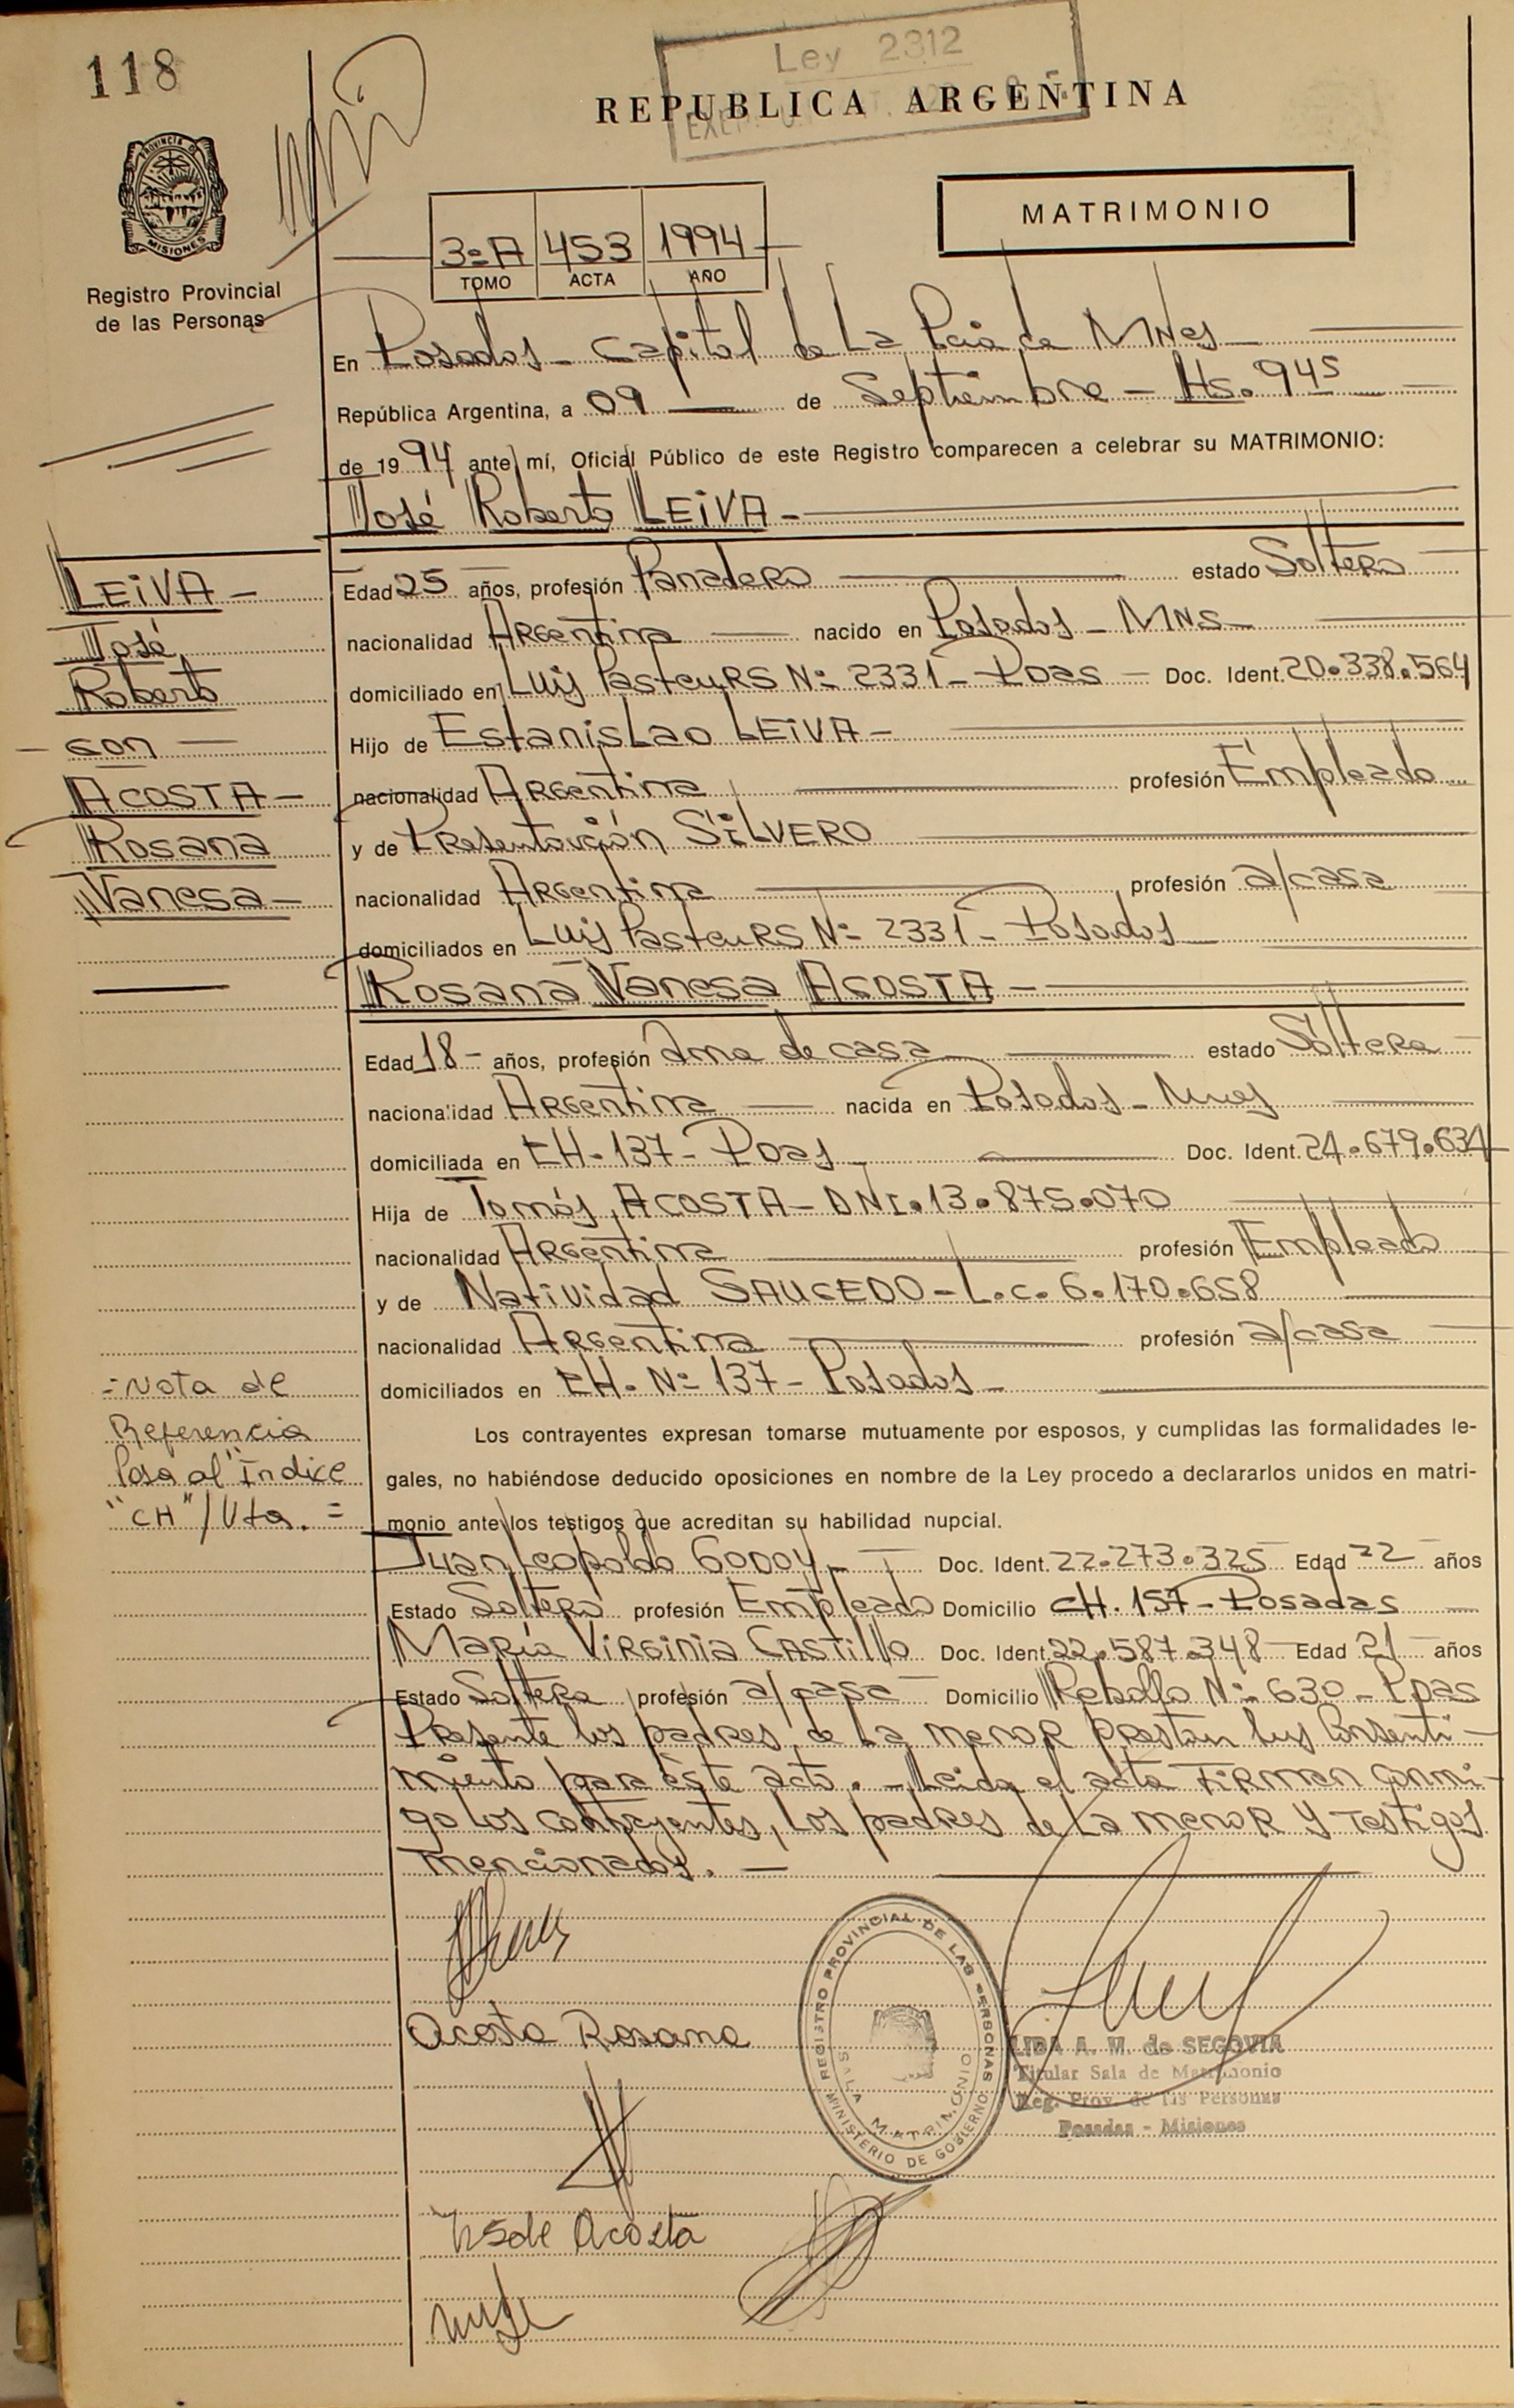 118
Ley 2312
REPUBLICA ARGENTINA
PROVINCIA DE
MISIONES
Registro Provincial
de las Personas
3º A 453 1994
TOMO ACTA AÑO
MATRIMONIO
En Posadas - Capital de La Pcia de MNes
República Argentina, a 09 de Septiembre - Hs. 9 45
de 19 94 ante mí, Oficial Público de este Registro comparecen a celebrar su MATRIMONIO:
José Roberto LEiVA -
LEiVA -
José
Roberto
- con -
ACOSTA -
Rosana
Vanesa -
Edad 25 años, profesión Panadero estado Soltero
nacionalidad Argentina nacido en Posadas - MNS
domiciliado en Luis PasteuRS Nº 2331 - Pdas - Doc. Ident. 20.338.564
Hijo de EstanisLao LEiVA -
nacionalidad Argentina profesión Empleado
y de Presentación SiLVERO
nacionalidad Argentina profesión a/casa
domiciliados en Luis PasteuRS Nº 2331 - Posadas
Rosana Vanesa ACOSTA -
Edad 18 - años, profesión Ama de casa estado Soltera
nacionalidad Argentina nacida en Posados - Mnes
domiciliada en CH. 137 - Pdas Doc. Ident. 24.679.634
Hija de Tomás ACOSTA - DNI. 13.875.070
nacionalidad Argentina profesión Empleado
y de Natividad SAUCEDO - L.c. 6.170.658
nacionalidad Argentina profesión a/casa
domiciliados en CH. Nº 137 - Posadas -
= Nota de
Referencia
Pasa al "Indice
"CH"/Vta. =
Los contrayentes expresan tomarse mutuamente por esposos, y cumplidas las formalidades le-
gales, no habiéndose deducido oposiciones en nombre de la Ley procedo a declararlos unidos en matri-
monio ante los testigos que acreditan su habilidad nupcial.
Juan Leopoldo GODOY - Doc. Ident. 22.273.325 Edad 22 años
Estado Soltero profesión Empleado Domicilio CH. 157 - Posadas
María ViRginia CASTillo Doc. Ident. 22.587.348 Edad 21 años
Estado Soltera profesión a/casa Domicilio Rebollo Nº 630 - Pdas
Presente los padres de La menoR prestan sus Consenti-
miento para éste acto. - Leida el acta FiRman Conmi-
go los contrayentes, los padres de La menoR y Testigos
mencionados. -
Acosta Rosana
REGISTRO PROVINCIAL DE LAS PERSONAS
SALA MATRIMONIO
MINISTERIO DE GOBIERNO
LIDA A. M. de SEGOVIA
Titular Sala de Matrimonio
Reg. Prov. de las Personas
Posadas - Misiones
NSde Acosta